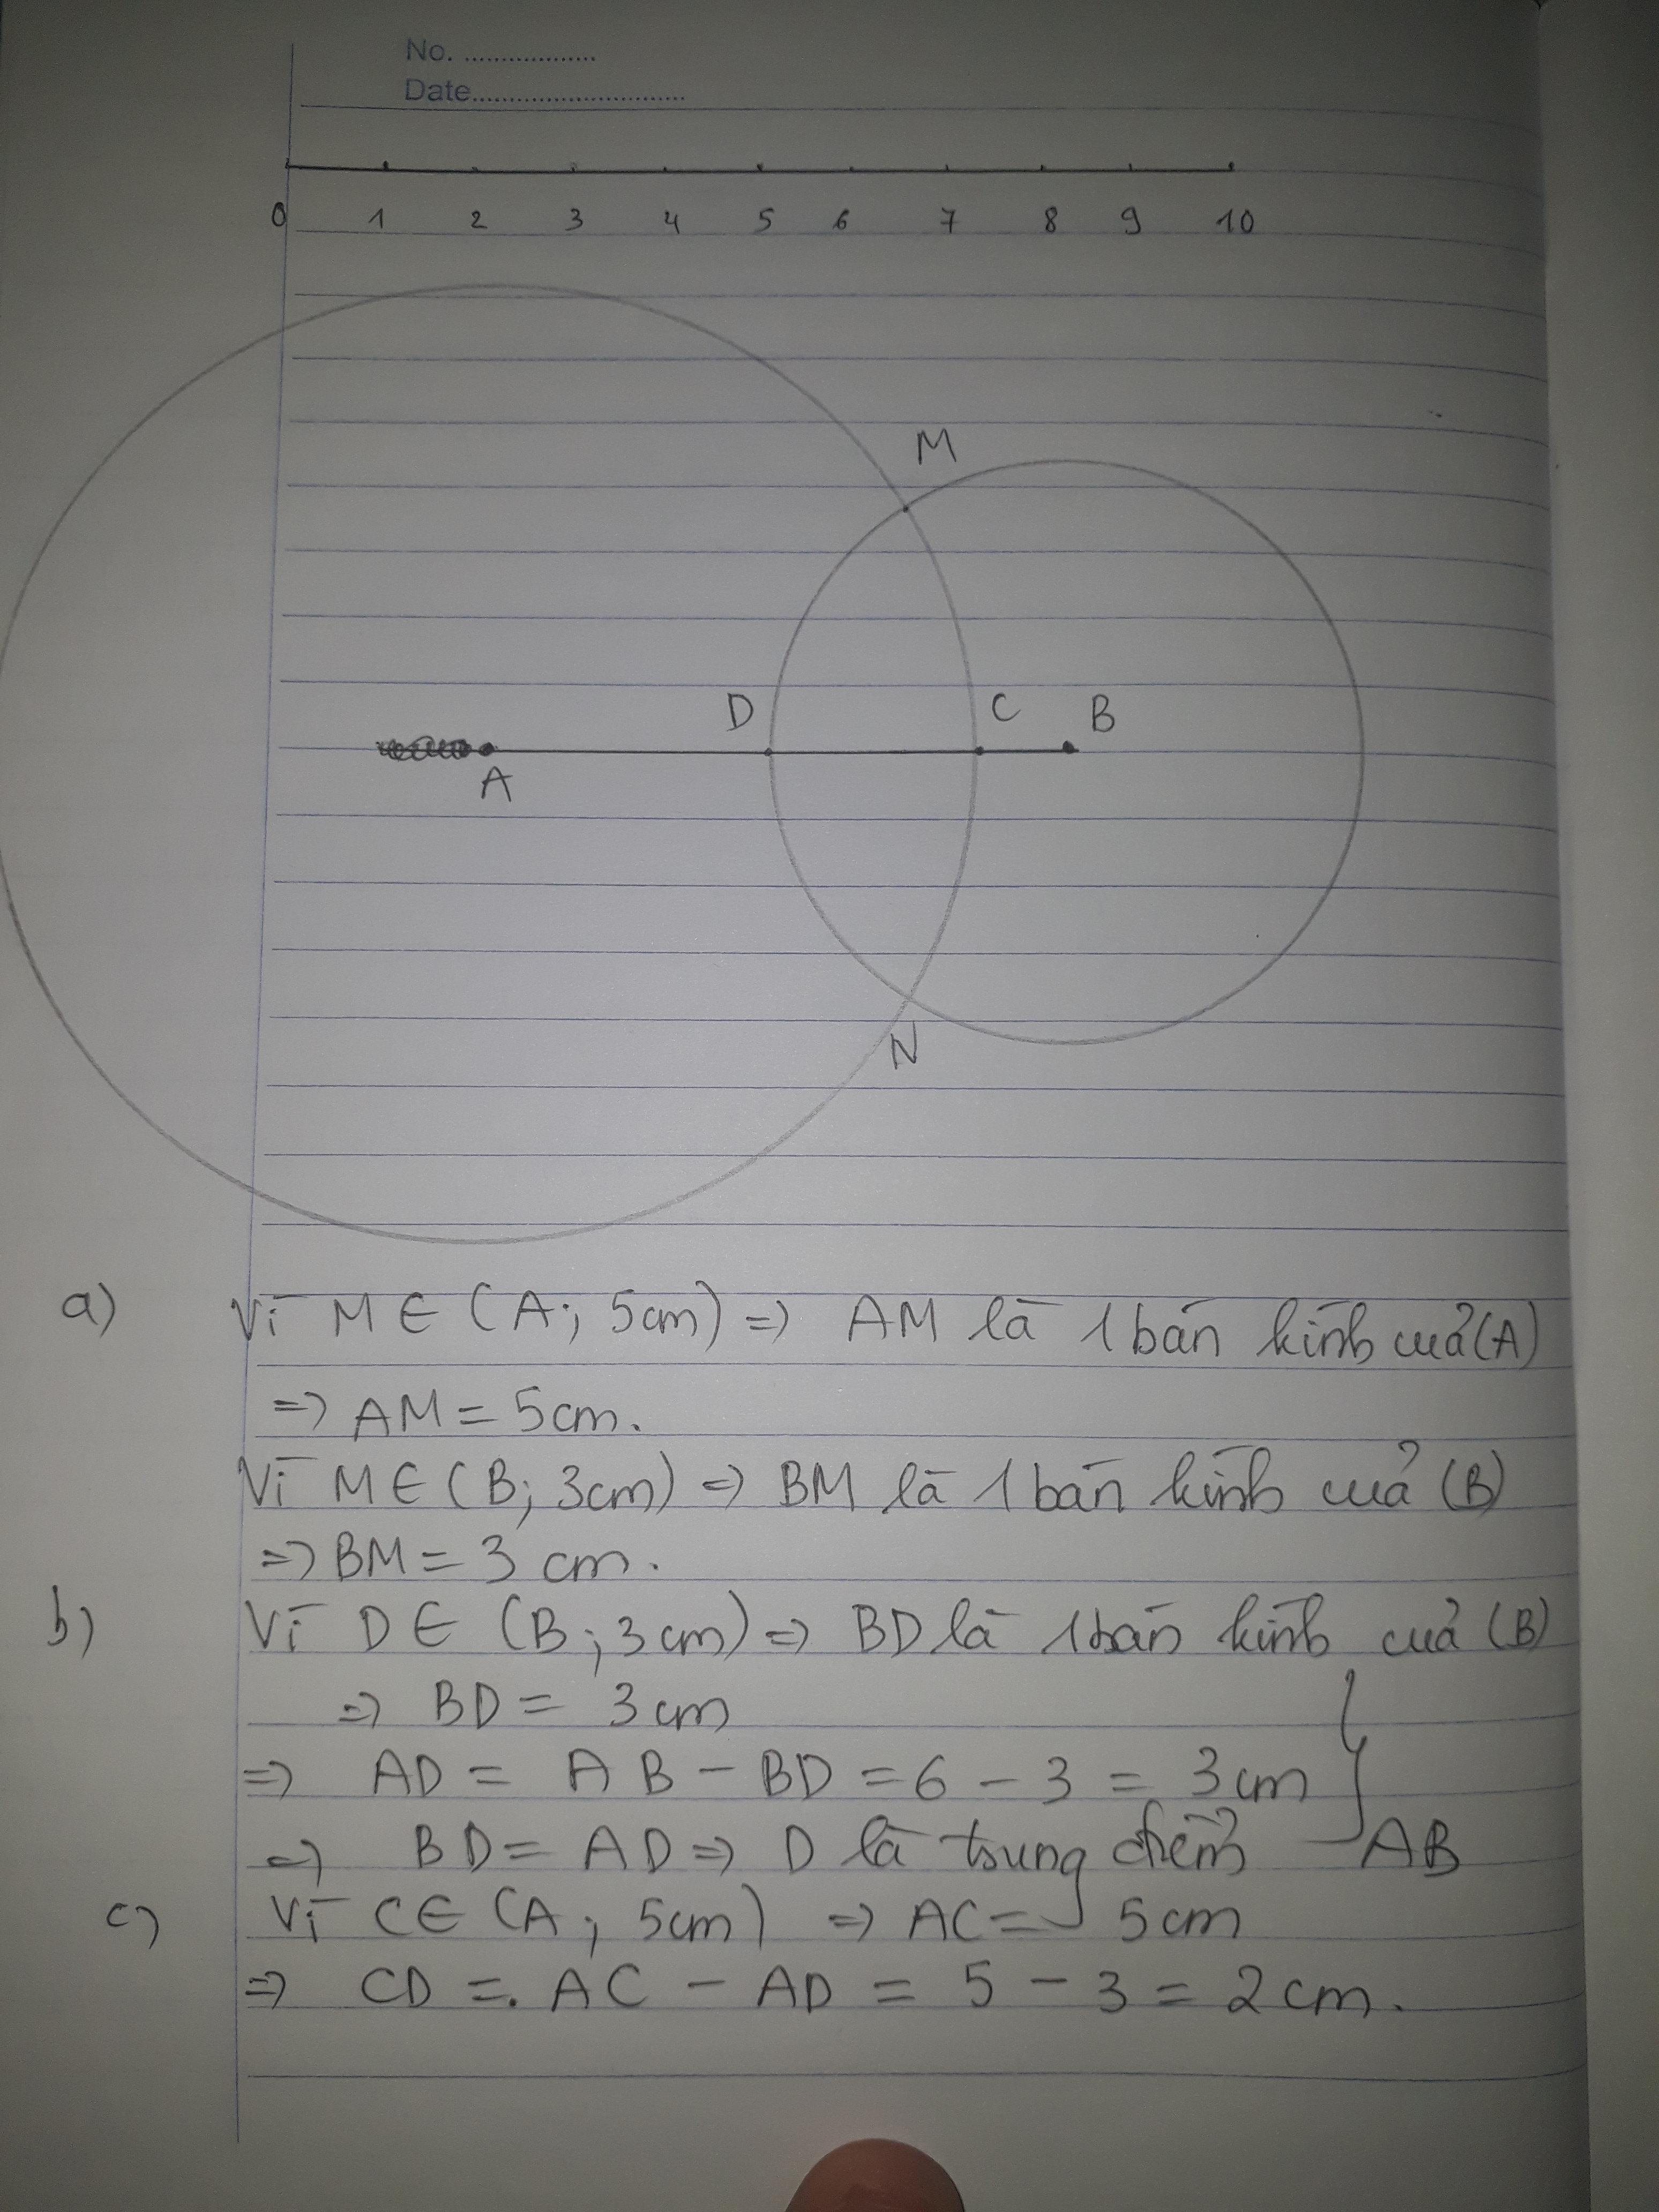 No. ...................
Date...............................
0 1 2 3 4 5 6 7 8 9 10
M
D C B
A
N
a) Vì M ∈ (A; 5cm) => AM là 1 bán kính của (A)
=> AM = 5cm.
Vì M ∈ (B; 3cm) => BM là 1 bán kính của (B)
=> BM = 3 cm.
b) Vì D ∈ (B; 3cm) => BD là 1 bán kính của (B)
=> BD = 3cm
=> AD = AB - BD = 6 - 3 = 3cm
=> BD = AD => D là trung điểm AB
c) Vì C ∈ (A; 5cm) => AC = 5cm
=> CD =. AC - AD = 5 - 3 = 2cm.